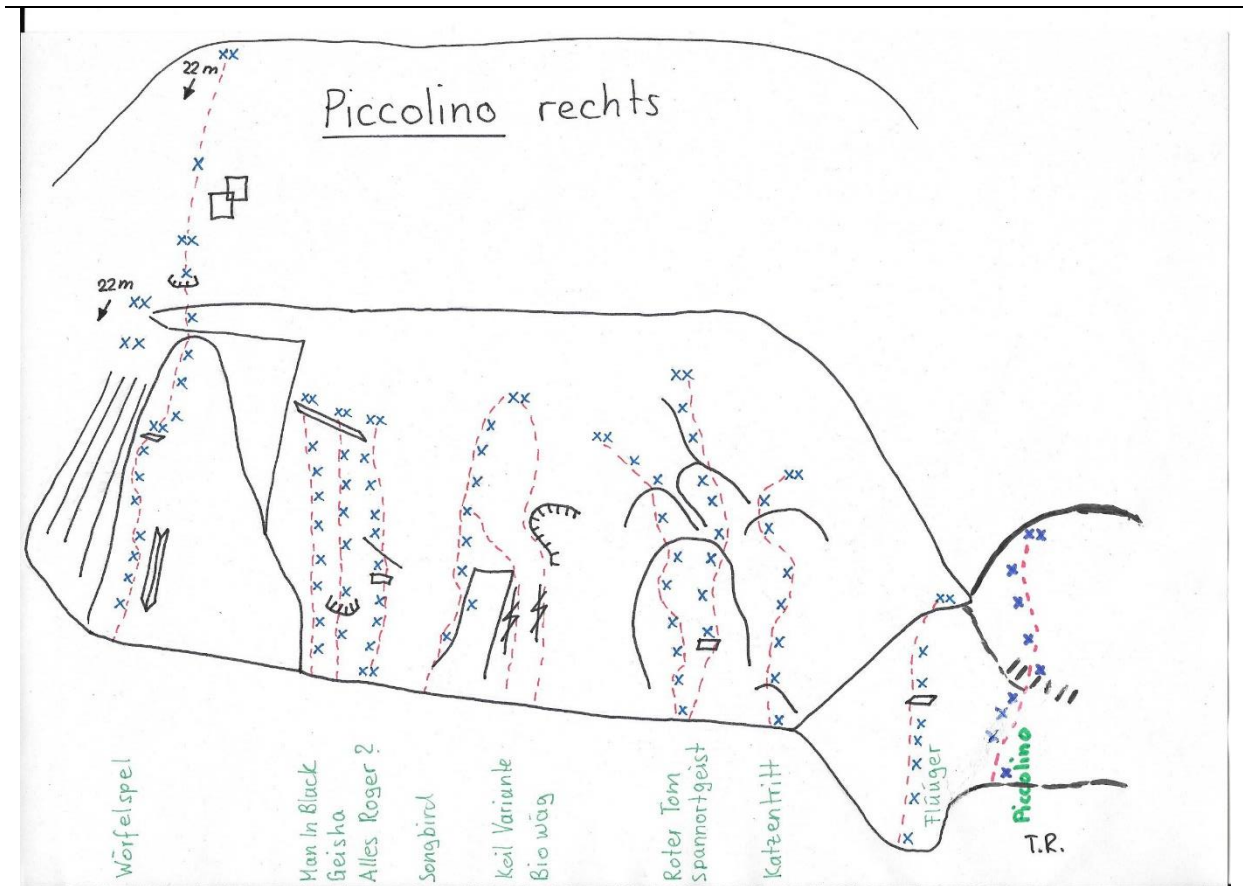 22m
Piccolino rechts
22m
Wörfelspel
Man In Black
Geisha
Alles Roger ?
Songbird
Keil Variante
Bio wäg
Roter Tom
spannortgeist
Katzentritt
Flüüger
Piccolino
T.R.